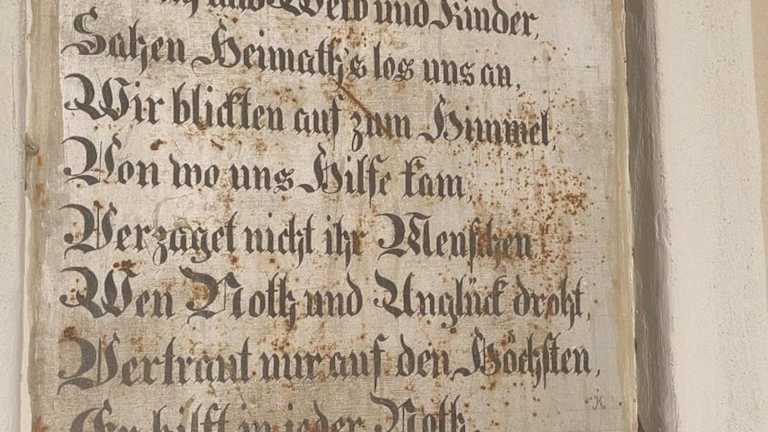 und Weib und Kinder,
Sahen Heimath's los uns an,
Wir blickten auf zum Himmel,
Von wo uns Hilfe kam,
Verzaget nicht ihr Menschen
Wen Noth und Unglück droht,
Vertraut nur auf den Höchsten,
Er hilft in jeder Noth.
K